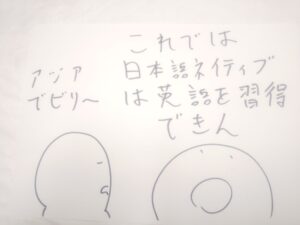 これでは
日本語ネイティブ
は英語を習得
できん
アジア
でビリ〜